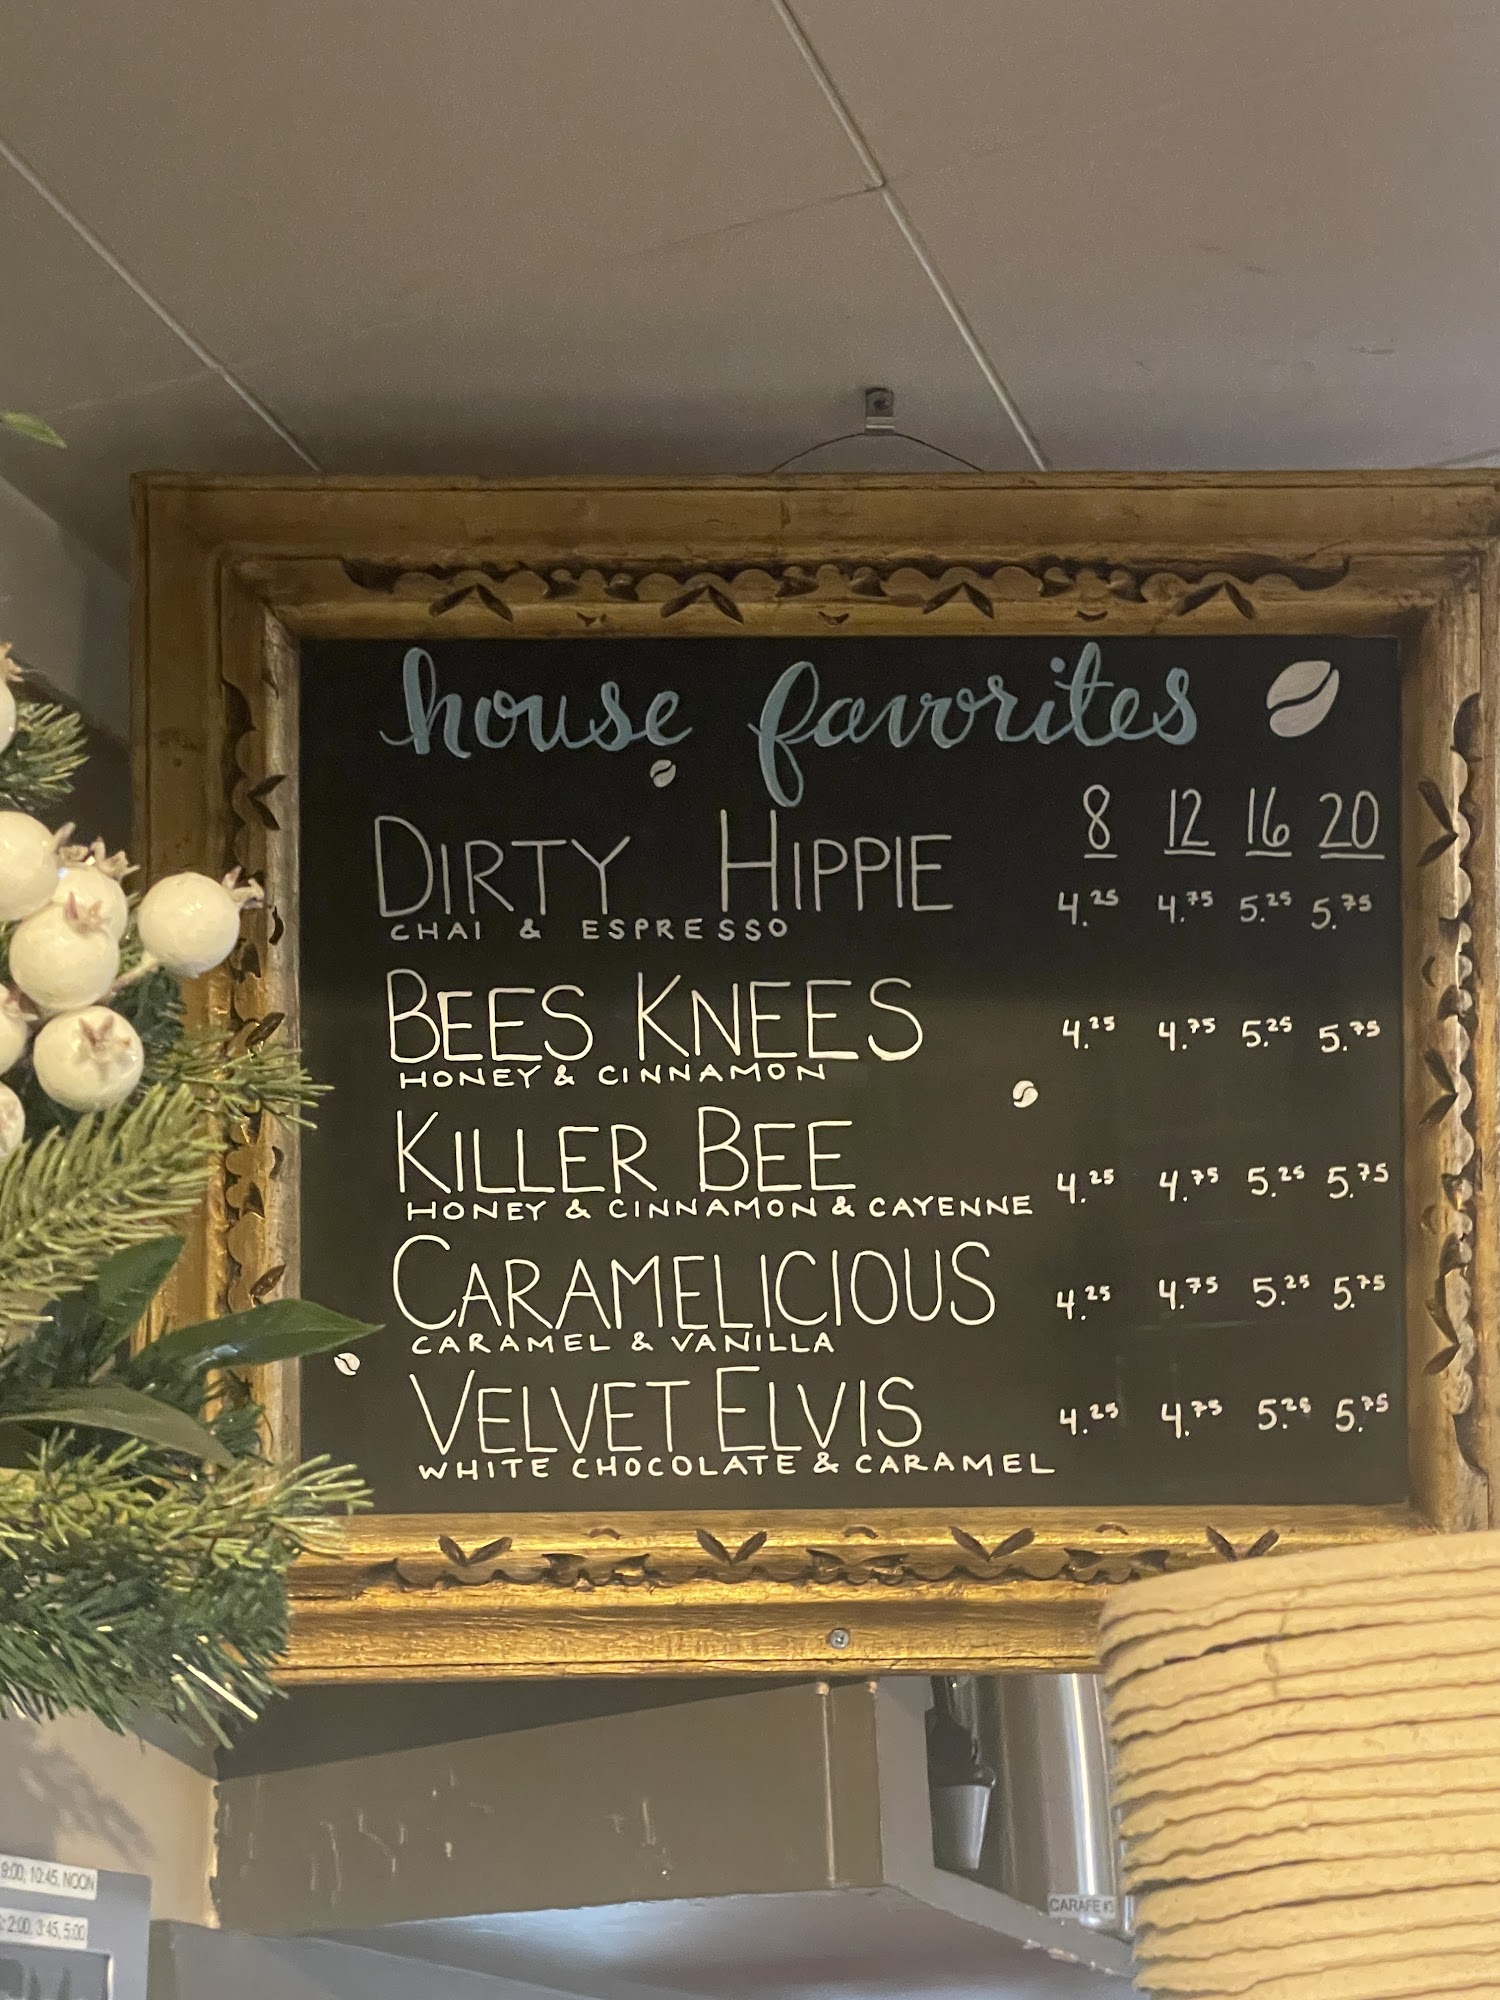 house favorites
8 12 16 20
DIRTY HIPPIE 4.25 4.75 5.25 5.75
CHAI & ESPRESSO
BEES KNEES 4.25 4.75 5.25 5.75
HONEY & CINNAMON
KILLER BEE 4.25 4.75 5.25 5.75
HONEY & CINNAMON & CAYENNE
CARAMELICIOUS 4.25 4.75 5.25 5.75
CARAMEL & VANILLA
VELVET ELVIS 4.25 4.75 5.25 5.75
WHITE CHOCOLATE & CARAMEL
9:00, 10:45, NOON
2:00, 3:45, 5:00
CARAFE #3